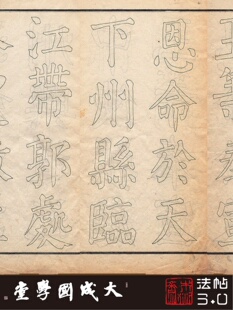 恩命於天
下州縣臨
江帶郭處
大成國學堂
法帖
3.0